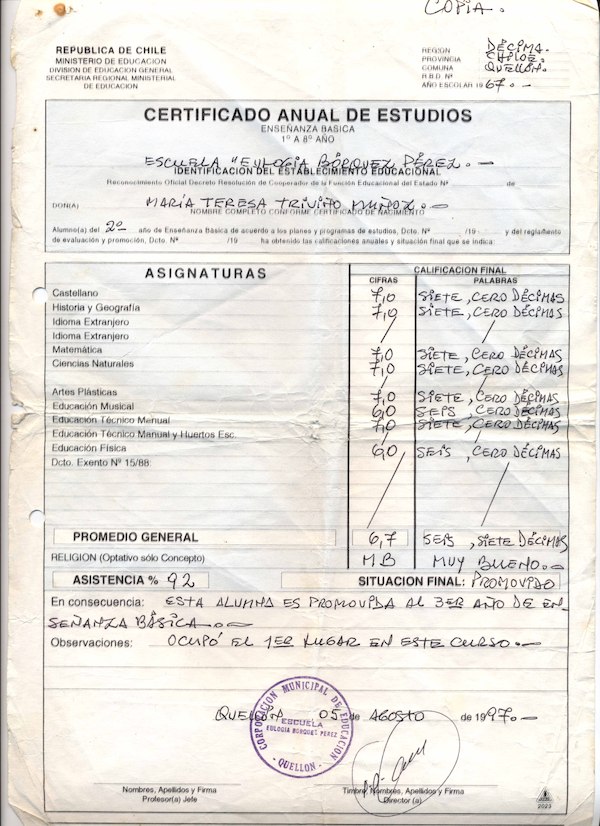 COPIA.
REPUBLICA DE CHILE
MINISTERIO DE EDUCACION
DIVISION DE EDUCACION GENERAL
SECRETARIA REGIONAL MINISTERIAL
DE EDUCACION
REGION DÉCIMA.
PROVINCIA CHILOÉ.
COMUNA QUELLÓN.
R.B.D. Nº
AÑO ESCOLAR 1967.-
CERTIFICADO ANUAL DE ESTUDIOS
ENSEÑANZA BASICA
1º A 8º AÑO
ESCUELA "EULOGIA BÓRQUEZ PÉREZ.-
IDENTIFICACION DEL ESTABLECIMIENTO EDUCACIONAL
Reconocimiento Oficial Decreto Resolución de Cooperador de la Función Educacional del Estado Nº de
DON(A) MARÍA TERESA TRIVIÑO MUÑOZ.-
NOMBRE COMPLETO CONFORME CERTIFICADO DE NACIMIENTO
Alumno(a) del 2º año de Enseñanza Básica de acuerdo a los planes y programas de estudios, Dcto. Nº /19 y del reglamento
de evaluación y promoción, Dcto. Nº /19 ha obtenido las calificaciones anuales y situación final que se indica:
ASIGNATURAS CALIFICACION FINAL
CIFRAS PALABRAS
Castellano 7,0 SIETE, CERO DÉCIMAS
Historia y Geografía 7,0 SIETE, CERO DÉCIMAS
Idioma Extranjero
Idioma Extranjero
Matemática 7,0 SIETE, CERO DÉCIMAS
Ciencias Naturales 7,0 SIETE, CERO DÉCIMAS
Artes Plásticas 7,0 SIETE, CERO DÉCIMAS
Educación Musical 6,0 SEIS, CERO DÉCIMAS
Educación Técnico Manual 7,0 SIETE, CERO DÉCIMAS
Educación Técnico Manual y Huertos Esc.
Educación Física 6,0 SEIS, CERO DÉCIMAS
Dcto. Exento Nº 15/88:
PROMEDIO GENERAL 6,7 SEIS, SIETE DÉCIMAS
RELIGION (Optativo sólo Concepto) MB MUY BUENO.-
ASISTENCIA % 92 SITUACION FINAL: PROMOVIDO
En consecuencia: ESTA ALUMNA ES PROMOVIDA AL 3ER AÑO DE EN-
SEÑANZA BÁSICA.-
Observaciones: OCUPÓ EL 1ER LUGAR EN ESTE CURSO.-
QUELLÓN 05 de AGOSTO de 1997.-
CORPORACION MUNICIPAL DE EDUCACION
ESCUELA
EULOGIA BORQUEZ PEREZ
- QUELLON -
Nombres, Apellidos y Firma
Profesor(a) Jefe
Timbre, Nombres, Apellidos y Firma
Director (a)